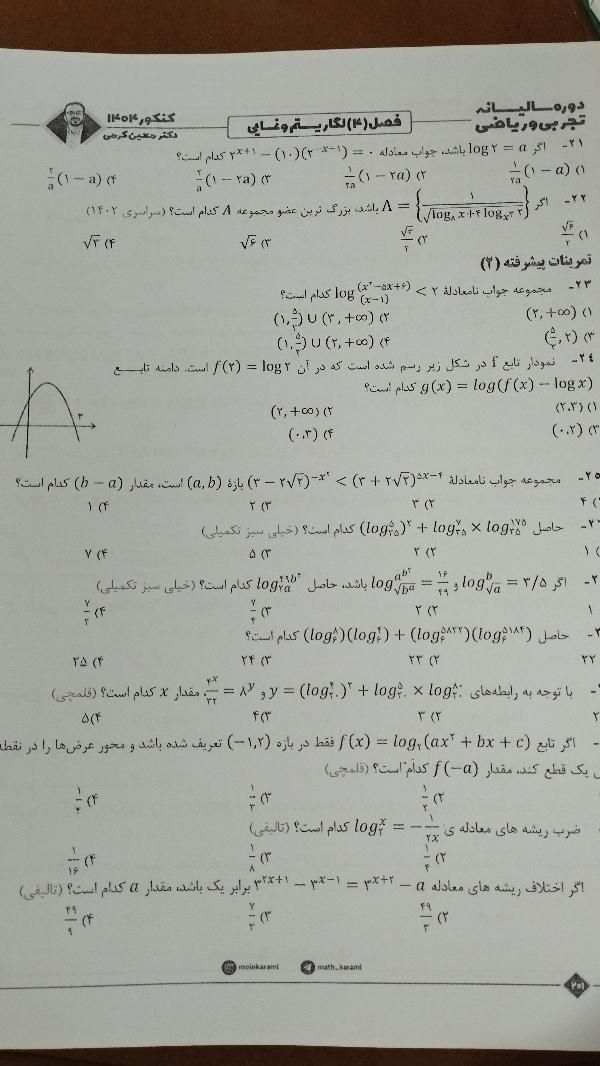 دوره سالیانه
تجربی و ریاضی
فصل (۴) لگاریتم و نمایی
کنکور ۱۴۰۴
دکتر معین کرمی
۲۱- اگر log ۲ = a باشد، جواب معادله ۲^(x+۱) − (۱۰)(۲^(−x−۱)) = ۰ کدام است؟
۱) ۱/۲a (۱ − a) ۲) ۱/۲a (۱ − ۲a) ۳) ۲/a (۱ − ۲a) ۴) ۲/a (۱ − a)
۲۲- اگر A = {۱/√(log_۸ x + ۴ log_x^۳ ۲)} باشد، بزرگ ترین عضو مجموعه A کدام است؟ (سراسری ۱۴۰۲)
۱) √۶/۲ ۲) √۳/۲ ۳) √۶ ۴) √۳
تمرینات پیشرفته (۲)
۲۳- مجموعه جواب نامعادلهٔ log_(x−۱)^(x^۲−۵x+۶) < ۲ کدام است؟
۱) (۲, +∞) ۲) (۱, ۵/۳) ∪ (۳, +∞)
۳) (۵/۳, ۲) ۴) (۱, ۵/۳) ∪ (۲, +∞)
۲۴- نمودار تابع f در شکل زیر رسم شده است که در آن f(۲) = log ۲ است. دامنه تابع
g(x) = log(f(x) − log x) کدام است؟
۳
۱) (۲,۳) ۲) (۲, +∞)
۳) (۰,۲) ۴) (۰,۳)
۲۵- مجموعه جواب نامعادلهٔ (۳ + ۲√۲)^(۵x−۴) > (۳ − ۲√۲)^(−x^۲) بازهٔ (a, b) است، مقدار (b − a) کدام است؟
۴ ۲) ۳ ۳) ۲ ۴) ۱
حاصل (log_۳۵^۵)^۲ + log_۳۵^۷ × log_۳۵^۱۷۵ کدام است؟ (خیلی سبز تکمیلی)
۱ ۲) ۲ ۳) ۵ ۴) ۷
اگر log_√a^b = ۳/۵ و log_√(ba)^(ab^۲) = ۱۶/۴۹ باشد، حاصل log_۲a^(۴۹b^۲) کدام است؟ (خیلی سبز تکمیلی)
۱ ۲) ۲ ۳) ۷/۴ ۴) ۷/۲
حاصل (log_۶^۸)(log_۶^۴) + (log_۶^۵۸۳۲)(log_۶^۵۱۸۴) کدام است؟
۲۲ ۲) ۲۳ ۳) ۲۴ ۴) ۲۵
با توجه به رابطه‌های y = (log_۲۰^۴)^۲ + log_۲۰^۵ × log_۲۰^۸۰ و ۴^x/۳۲ = ۸^y، مقدار x کدام است؟ (قلمچی)
۲ ۲) ۳ ۳) ۴ ۴) ۵
اگر تابع f(x) = log_۲(ax^۲ + bx + c) فقط در بازه (−۱,۲) تعریف شده باشد و محور عرض‌ها را در نقطه
یک قطع کند، مقدار f(−a) کدام است؟ (قلمچی)
۲) ۱/۲ ۳) ۱/۳ ۴) ۱/۴
ضرب ریشه های معادله ی log_۲^x = −۱/۲x کدام است؟ (تالیفی)
۲) ۱/۴ ۳) ۱/۸ ۴) ۱/۱۶
اگر اختلاف ریشه های معادله ۳^(۲x+۱) − ۳^(x−۱) = ۳^(x+۲) − a برابر یک باشد، مقدار a کدام است؟ (تالیفی)
۲) ۴۹/۳ ۳) ۷/۳ ۴) ۴۹/۹
moinkarami math_karami
۲۰۱